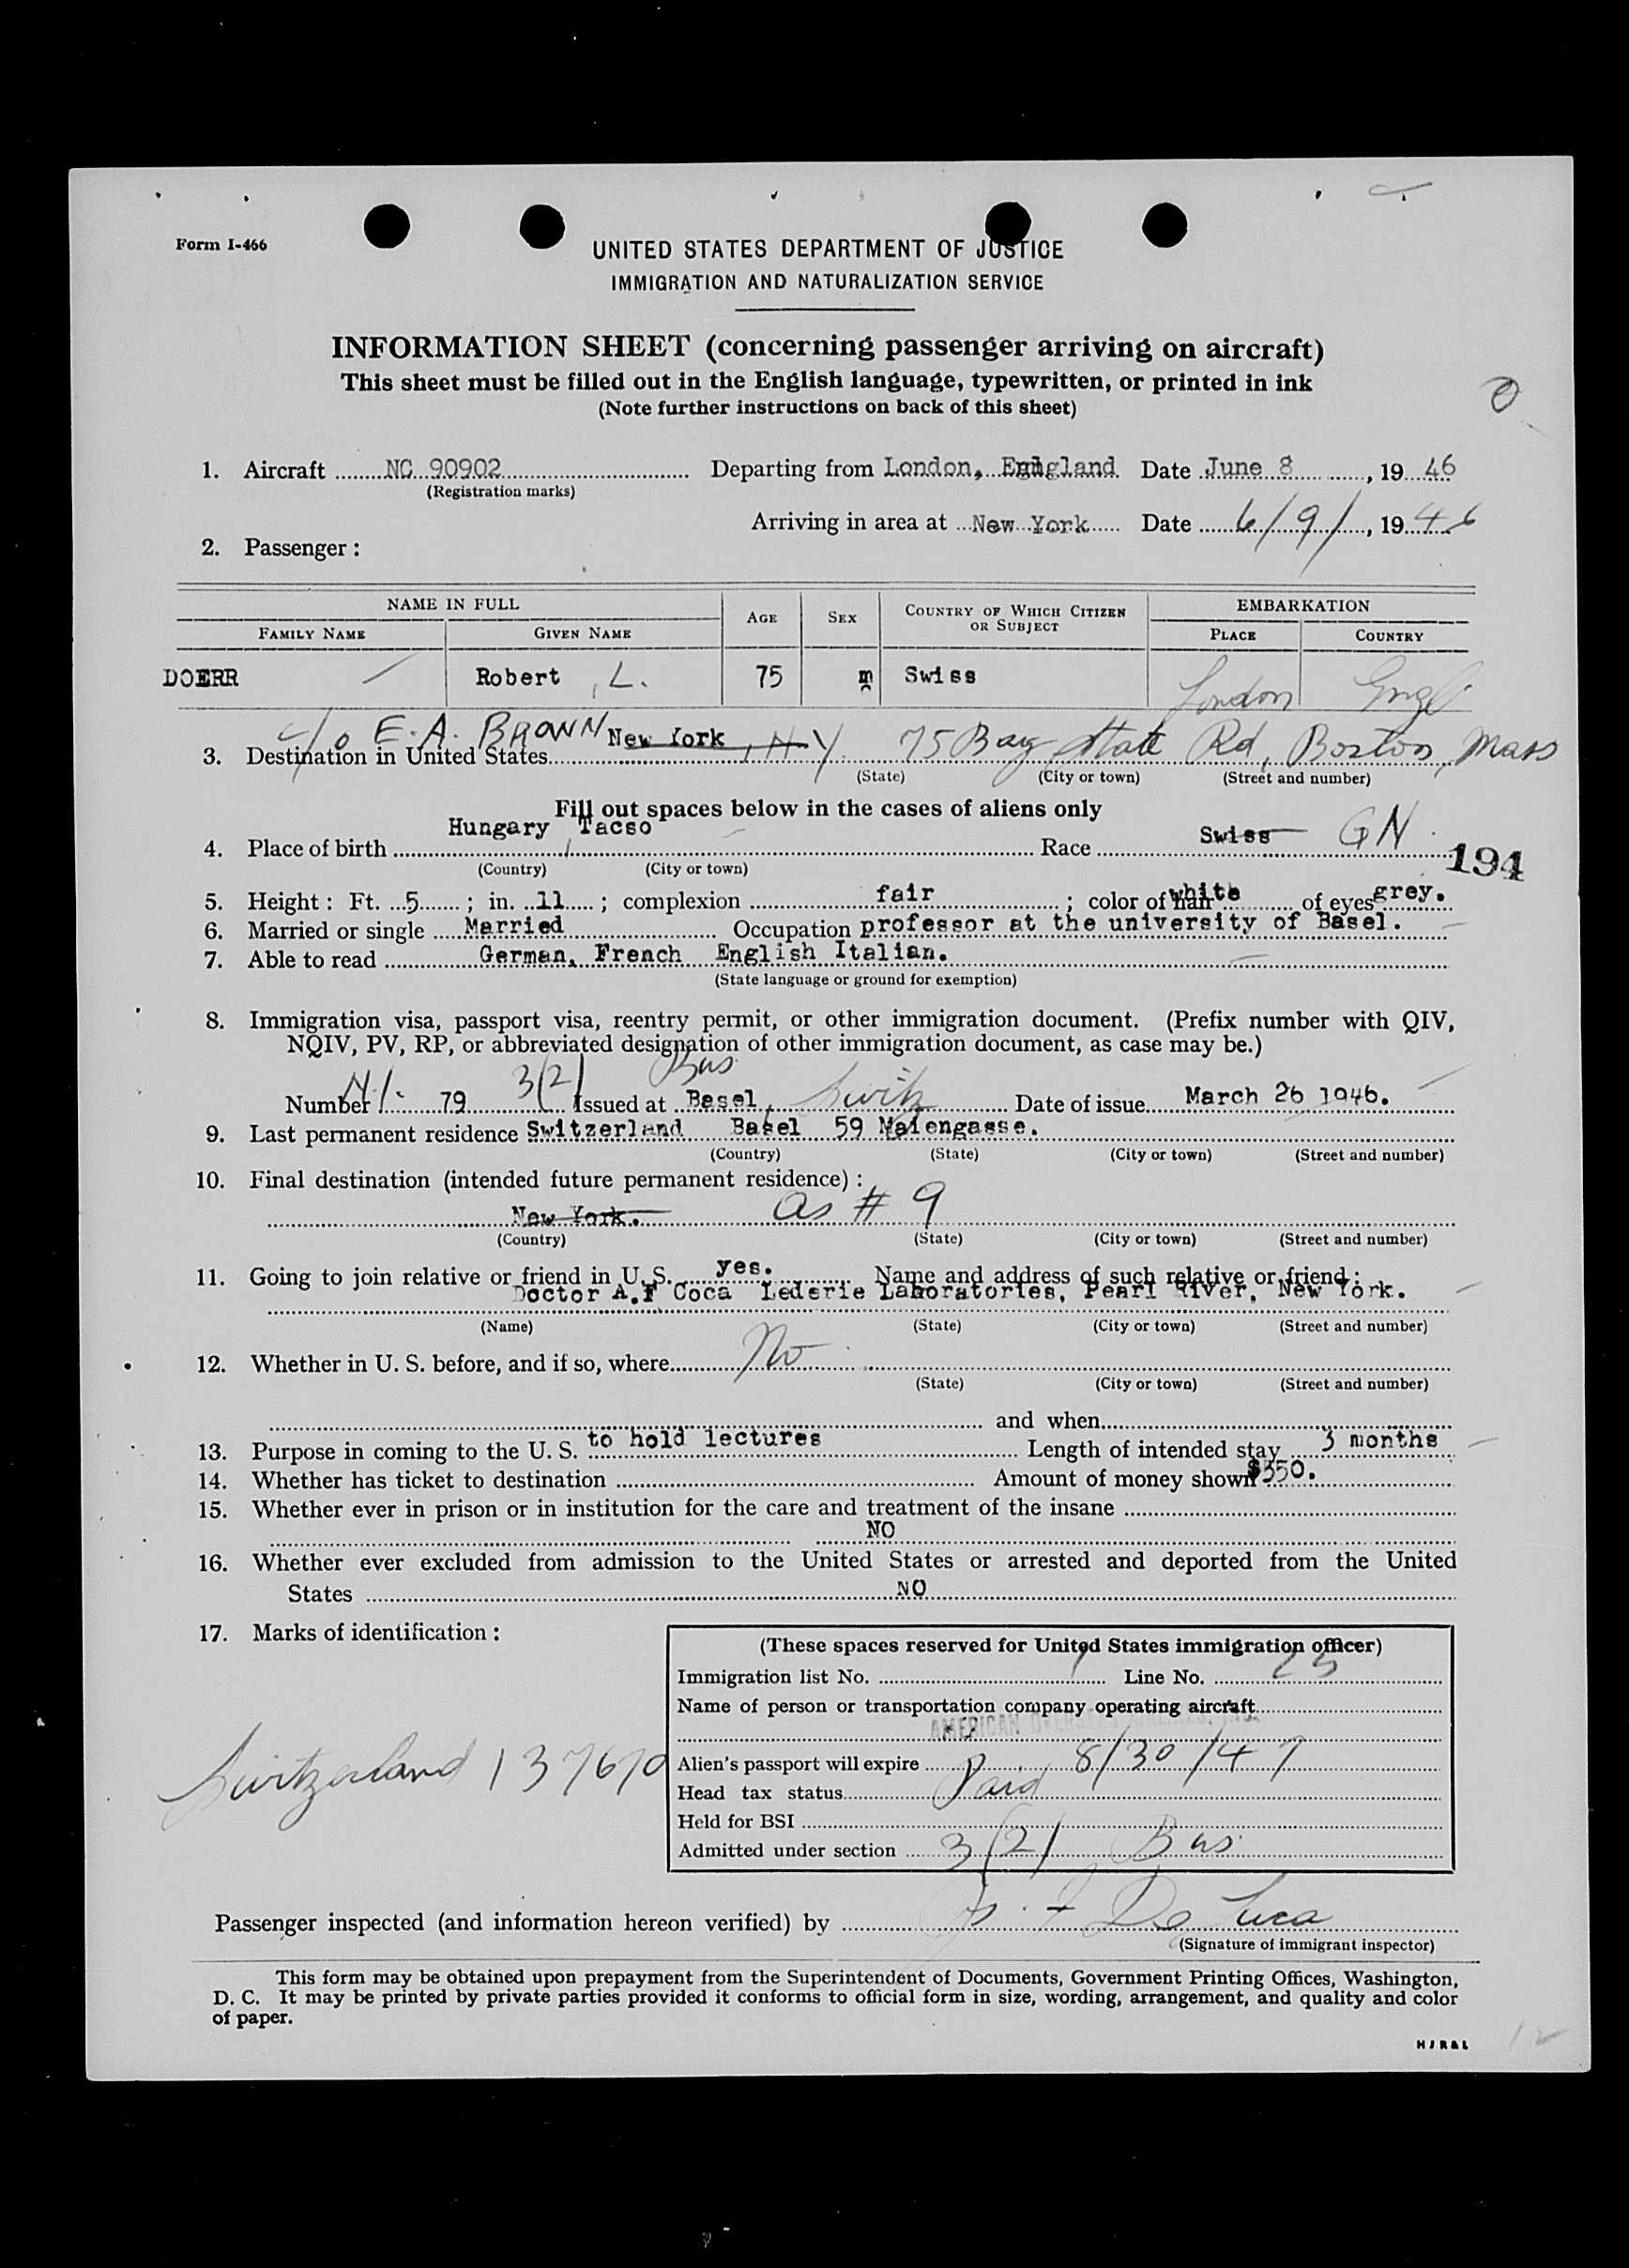 Form I-466
UNITED STATES DEPARTMENT OF JUSTICE
IMMIGRATION AND NATURALIZATION SERVICE
INFORMATION SHEET (concerning passenger arriving on aircraft)
This sheet must be filled out in the English language, typewritten, or printed in ink
(Note further instructions on back of this sheet)
1. Aircraft NC 90902 Departing from London, England Date June 8, 19 46
(Registration marks)
Arriving in area at New York Date 6/9/, 19 46
2. Passenger:
NAME IN FULL AGE SEX COUNTRY OF WHICH CITIZEN OR SUBJECT EMBARKATION
FAMILY NAME GIVEN NAME PLACE COUNTRY
DOERR Robert, L. 75 m Swiss London Engl
c/o E. A. BROWN New York, N Y. 75 Bay State Rd, Boston, Mass
3. Destination in United States
(State) (City or town) (Street and number)
Fill out spaces below in the cases of aliens only
4. Place of birth Hungary / Tacso Race Swiss GN.
(Country) (City or town)
194
5. Height: Ft. 5; in. 11; complexion fair; color of hair white of eyes grey.
6. Married or single Married Occupation professor at the university of Basel.
7. Able to read German, French English Italian.
(State language or ground for exemption)
8. Immigration visa, passport visa, reentry permit, or other immigration document. (Prefix number with QIV,
NQIV, PV, RP, or abbreviated designation of other immigration document, as case may be.)
3(2) Bus
Number N.I. 79 Issued at Basel, Switz Date of issue March 26 1946.
9. Last permanent residence Switzerland Basel 59 Maiengasse.
(Country) (State) (City or town) (Street and number)
10. Final destination (intended future permanent residence):
New York. as # 9
(Country) (State) (City or town) (Street and number)
11. Going to join relative or friend in U. S. yes. Name and address of such relative or friend:
Doctor A.F Coca Lederle Laboratories, Pearl River, New York.
(Name) (State) (City or town) (Street and number)
12. Whether in U. S. before, and if so, where No
(State) (City or town) (Street and number)
and when
13. Purpose in coming to the U. S. to hold lectures Length of intended stay 3 months
14. Whether has ticket to destination Amount of money shown $350.
15. Whether ever in prison or in institution for the care and treatment of the insane
NO
16. Whether ever excluded from admission to the United States or arrested and deported from the United
States NO
17. Marks of identification:
(These spaces reserved for United States immigration officer)
Immigration list No. 1 Line No. 23
Name of person or transportation company operating aircraft
AMERICAN OVERSEAS
Alien's passport will expire 8/30/47
Head tax status Paid
Held for BSI
Admitted under section 3(2) Bus
Switzerland 137670
Passenger inspected (and information hereon verified) by De Luca
(Signature of immigrant inspector)
This form may be obtained upon prepayment from the Superintendent of Documents, Government Printing Offices, Washington,
D. C. It may be printed by private parties provided it conforms to official form in size, wording, arrangement, and quality and color
of paper.
HJR&L